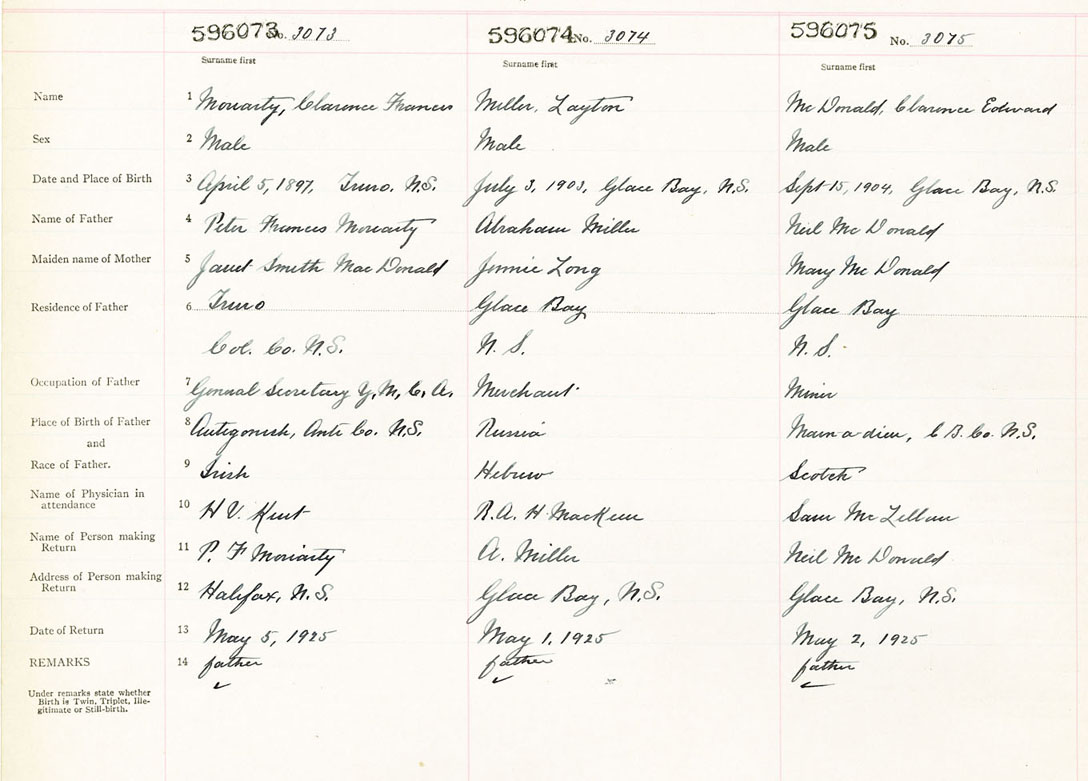 596073 No. 3073 596074 No. 3074 596075 No. 3075
Surname first Surname first Surname first
Name 1 Moriarty, Clarence Francis Miller, Layton McDonald, Clarence Edward
Sex 2 Male Male Male
Date and Place of Birth 3 April 5, 1897, Truro, N.S. July 3, 1903, Glace Bay, N.S. Sept 15, 1904, Glace Bay, N.S.
Name of Father 4 Peter Francis Moriarty Abraham Miller Neil McDonald
Maiden name of Mother 5 Janet Smith MacDonald Jennie Long Mary McDonald
Residence of Father 6 Truro Glace Bay Glace Bay
Col. Co. N.S. N. S. N. S.
Occupation of Father 7 General Secretary Y.M.C.A. Merchant Miner
Place of Birth of Father 8 Antigonish, Ant. Co. N.S. Russia Main a dieu, C B. Co. N.S.
and
Race of Father. 9 Irish Hebrew Scotch
Name of Physician in
attendance 10 H V. Kent R.A. H. MacKeen Sam McLellan
Name of Person making
Return 11 P. F Moriarty A. Miller Neil McDonald
Address of Person making
Return 12 Halifax, N.S. Glace Bay, N.S. Glace Bay, N.S.
Date of Return 13 May 5, 1925 May 1, 1925 May 2, 1925
REMARKS 14 father father father
Under remarks state whether
Birth is Twin, Triplet, Ille-
gitimate or Still-birth.